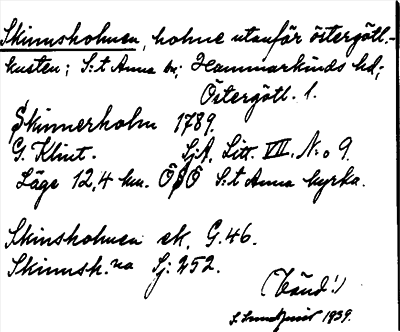 Skinnsholmen, holme utanför östergötl.-
kusten; S:t Anna sn; Hammarkinds hd;
Östergötl. l.
Skinnerholm 1789.
G. Klint. SjA, Litt. VII. N:o 9.
Läge 12,4 km. ÖSÖ S:t Anna kyrka.
Skinsholmen ek. G.46.
Skinnsh.na Sj: 252.
(Vänd!)
S. Lundqvist 1939.